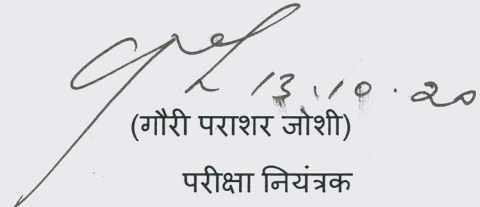 13.10.20
(गौरी पराशर जोशी)
परीक्षा नियंत्रक